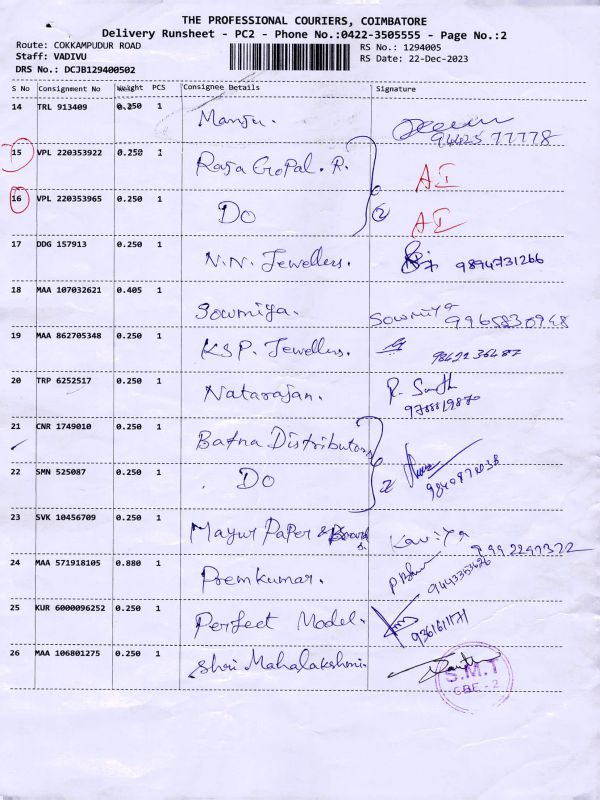 THE PROFESSIONAL COURIERS, COIMBATORE
Delivery Runsheet - PC2 - Phone No.:0422-3505555 - Page No.:2
Route: COKKAMPUDUR ROAD
RS No.: 1294005
Staff: VADIVU
RS Date: 22-Dec-2023
DRS No.: DCJB129400502
S No Consignment No Weight PCS Consignee Details Signature
14 TRL 913409 0.250 1 Manju. 94425 77778
15 VPL 220353922 0.250 1 Raja Gopal. R. AI
16 VPL 220353965 0.250 1 Do 2 AI
17 DDG 157913 0.250 1 N.N. Jewellers. 9894731266
18 MAA 107032621 0.405 1 Sowmiya. Sowmiya
19 MAA 862705348 0.250 1 KSP. Jewellers.
20 TRP 6252517 0.250 1 Natarajan.
21 CNR 1749010 0.250 1 Batna Distributors
22 SMN 525087 0.250 1 Do 2
23 SVK 10456709 0.250 1 Mayur Paper & Boards. Kaviya
24 MAA 571918105 0.880 1 Premkumar.
25 KUR 6000096252 0.250 1 Perfect Model. 9361611171
26 MAA 106801275 0.250 1 Shri Mahalakshmi.
S.M.T
CBE - 2